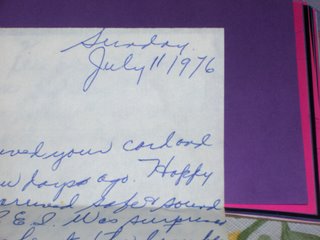 Sunday
July 11 1976
ived your card and
w days ago. Happy
rrived safe & sound
P.E.I. Was surprised